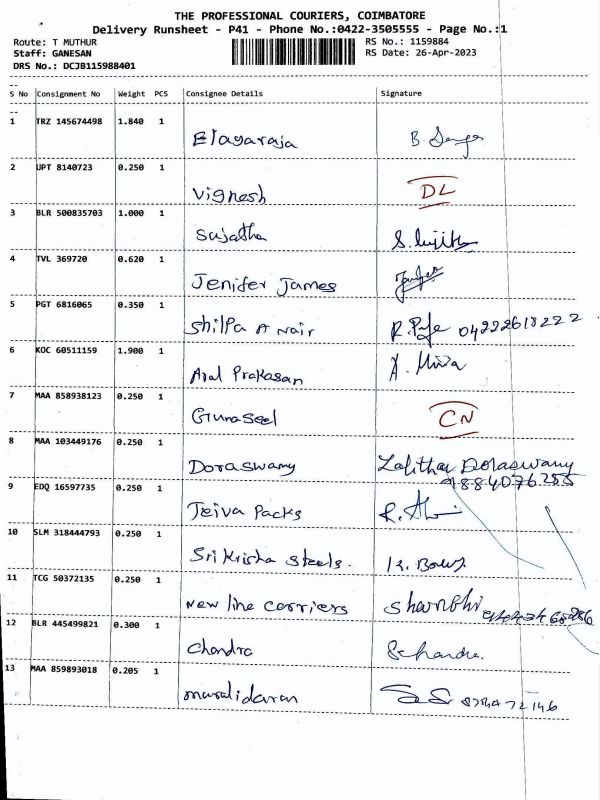 THE PROFESSIONAL COURIERS, COIMBATORE
Delivery Runsheet - P41 - Phone No.:0422-3505555 - Page No.:1
Route: T MUTHUR RS No.: 1159884
Staff: GANESAN RS Date: 26-Apr-2023
DRS No.: DCJB115988401
S No Consignment No Weight PCS Consignee Details Signature
1 TRZ 145674498 1.840 1
Elagaraja B
2 UPT 8140723 0.250 1
Vignesh DL
3 BLR 500835703 1.000 1
Sujatha S.
4 TVL 369720 0.620 1
Jenifer James
5 PGT 6816065 0.350 1
Shilpa A Nair R. 04222618222
6 KOC 60511159 1.900 1
Prakasan A.
7 MAA 858938123 0.250 1
Gunaseel CN
8 MAA 103449176 0.250 1
Doraswamy Lalitha Doraswamy
9884076255
9 EDQ 16597735 0.250 1
Jeiva Packs R.
10 SLM 318444793 0.250 1
Sri Krisha Steels. K.
11 TCG 50372135 0.250 1
New line carriers
12 BLR 445499821 0.300 1
Chandra
13 MAA 859893018 0.205 1
muralidaran